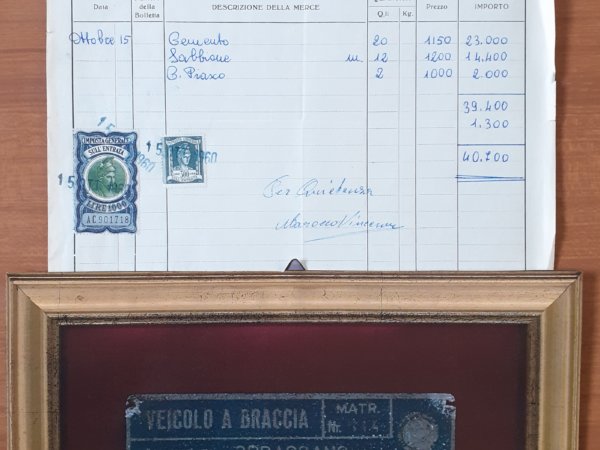 Data
della Bolletta
DESCRIZIONE DELLA MERCE
Q.li
Kg.
Prezzo
IMPORTO
Ottobre 15 Cemento 20 1150 23.000
Sabbione m. 12 1200 14.400
2 1000 2.000
39.400
1.300
40.700
IMPOSTA GENERALE
SULL'ENTRATA
LIRE 1000
AC901718
Per Quietanza
VEICOLO A BRACCIA
MATR.
Nr.